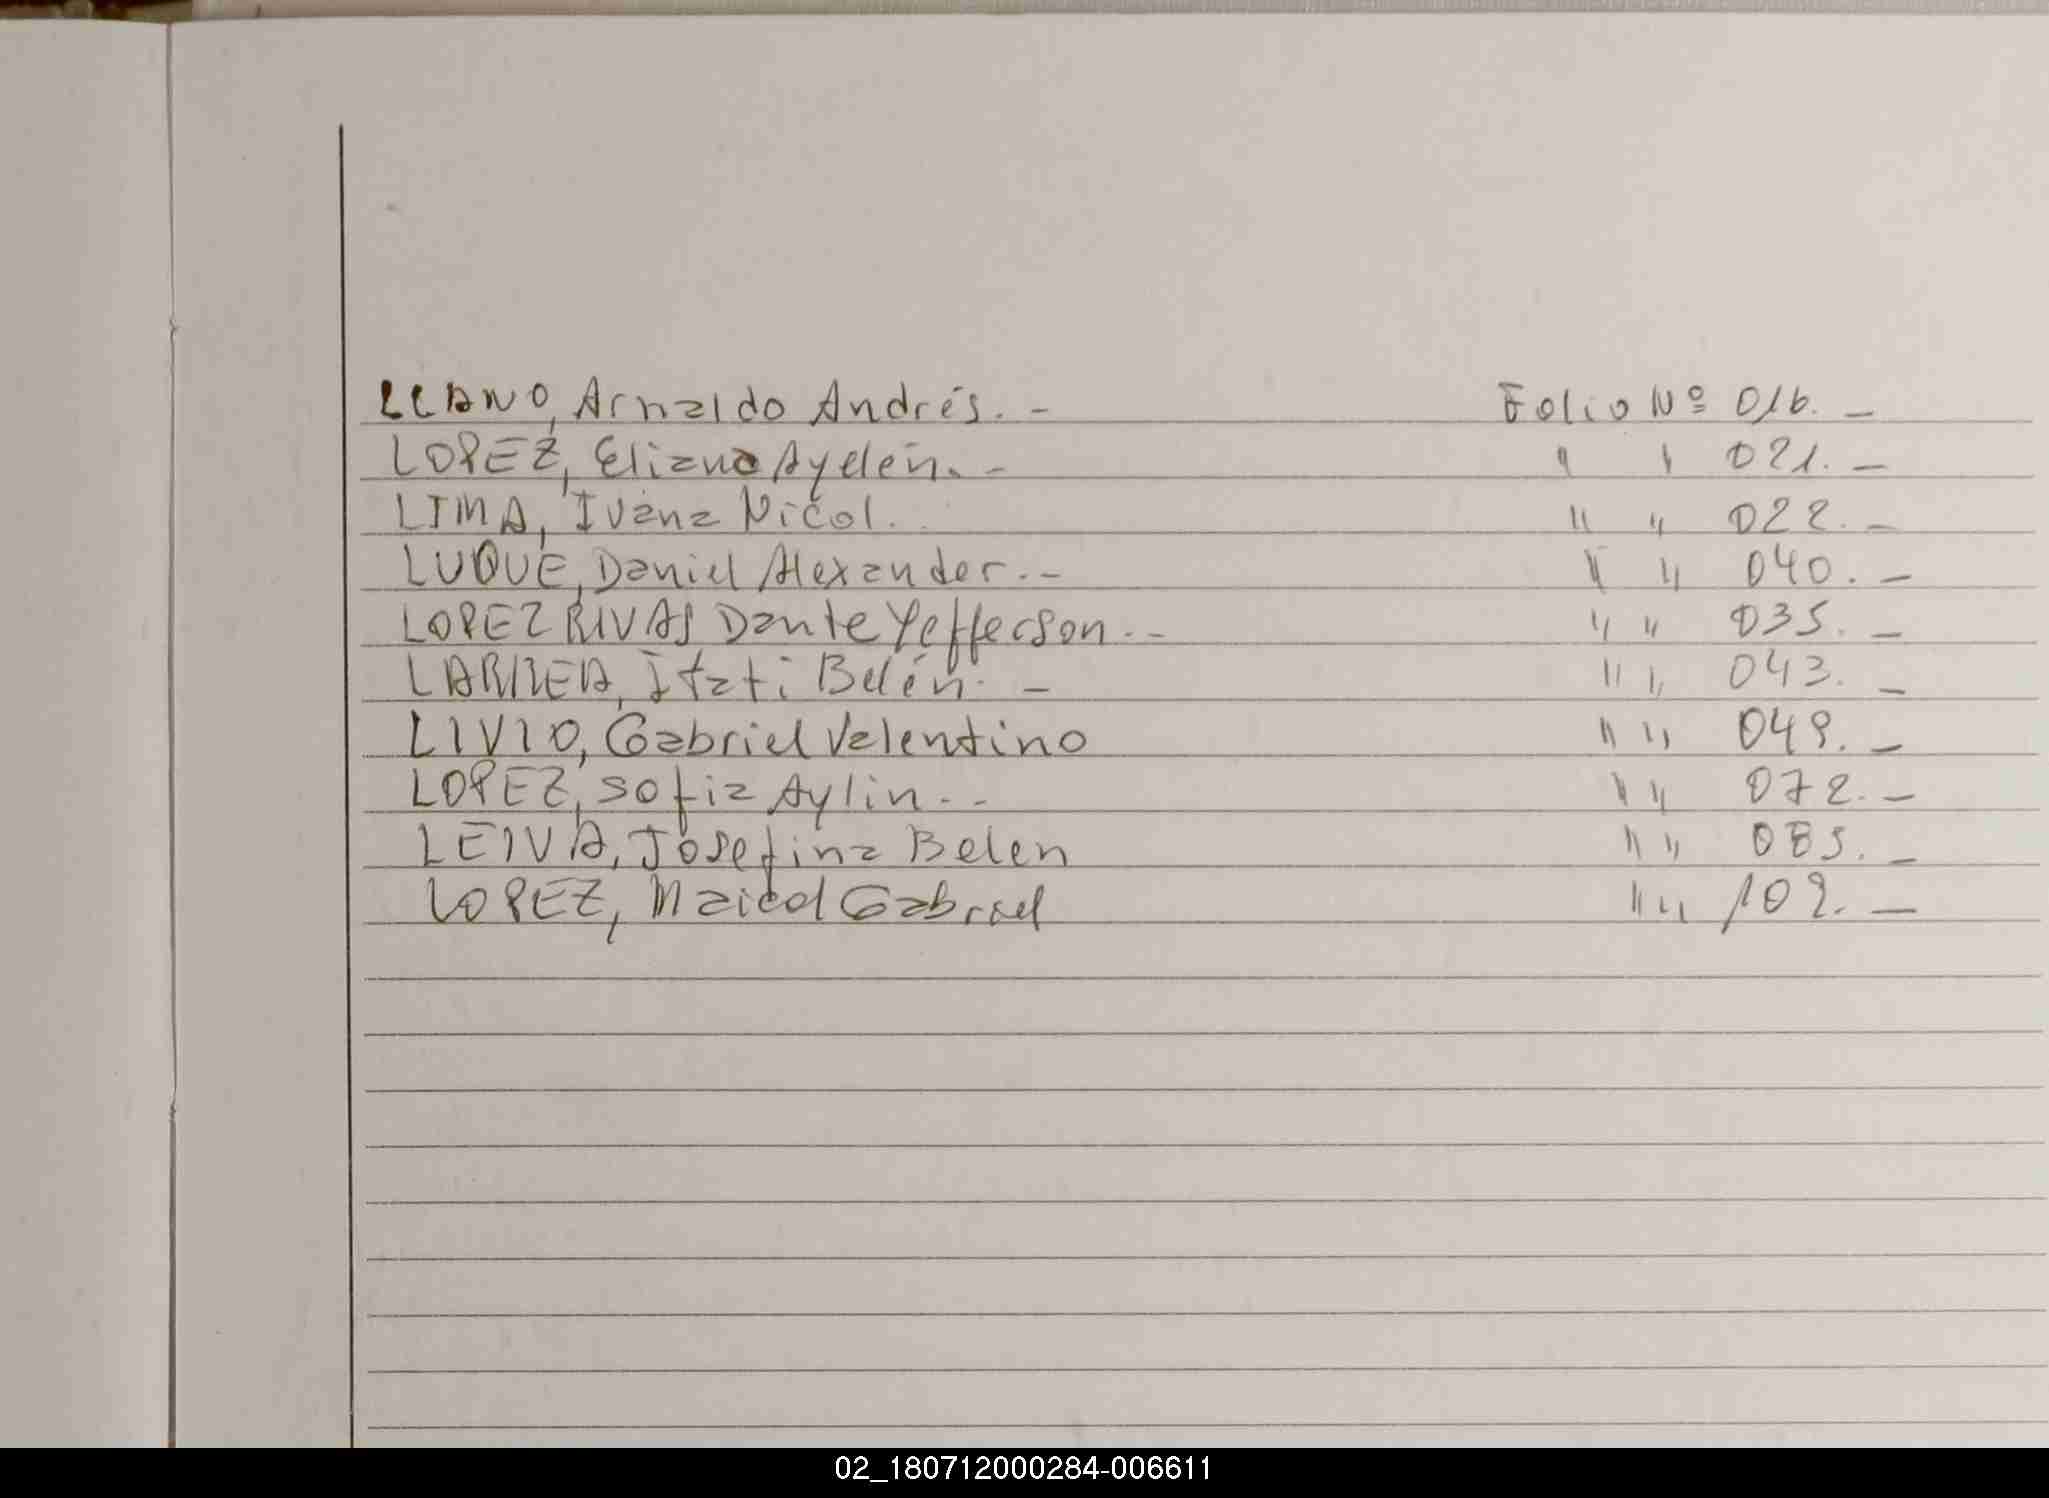 LLANO, Arnaldo Andrés. - Folio Nº 016. -
LOPEZ, Eliana Ayelén. - " " 021. -
LIMA, Ivana Nicol. . " " 022. -
LUQUE, Daniel Alexander. - " " 040. -
LOPEZ RIVAS Dante Yefferson. - " " 035. -
LARREA, Itatí Belén. - " " 043. -
LIVIO, Gabriel Valentino " " 049. -
LOPEZ, Sofia Aylin. - " " 072. -
LEIVA, Josefina Belen " " 085. -
LOPEZ, Maicol Gabriel " " 109. -
02_180712000284-006611